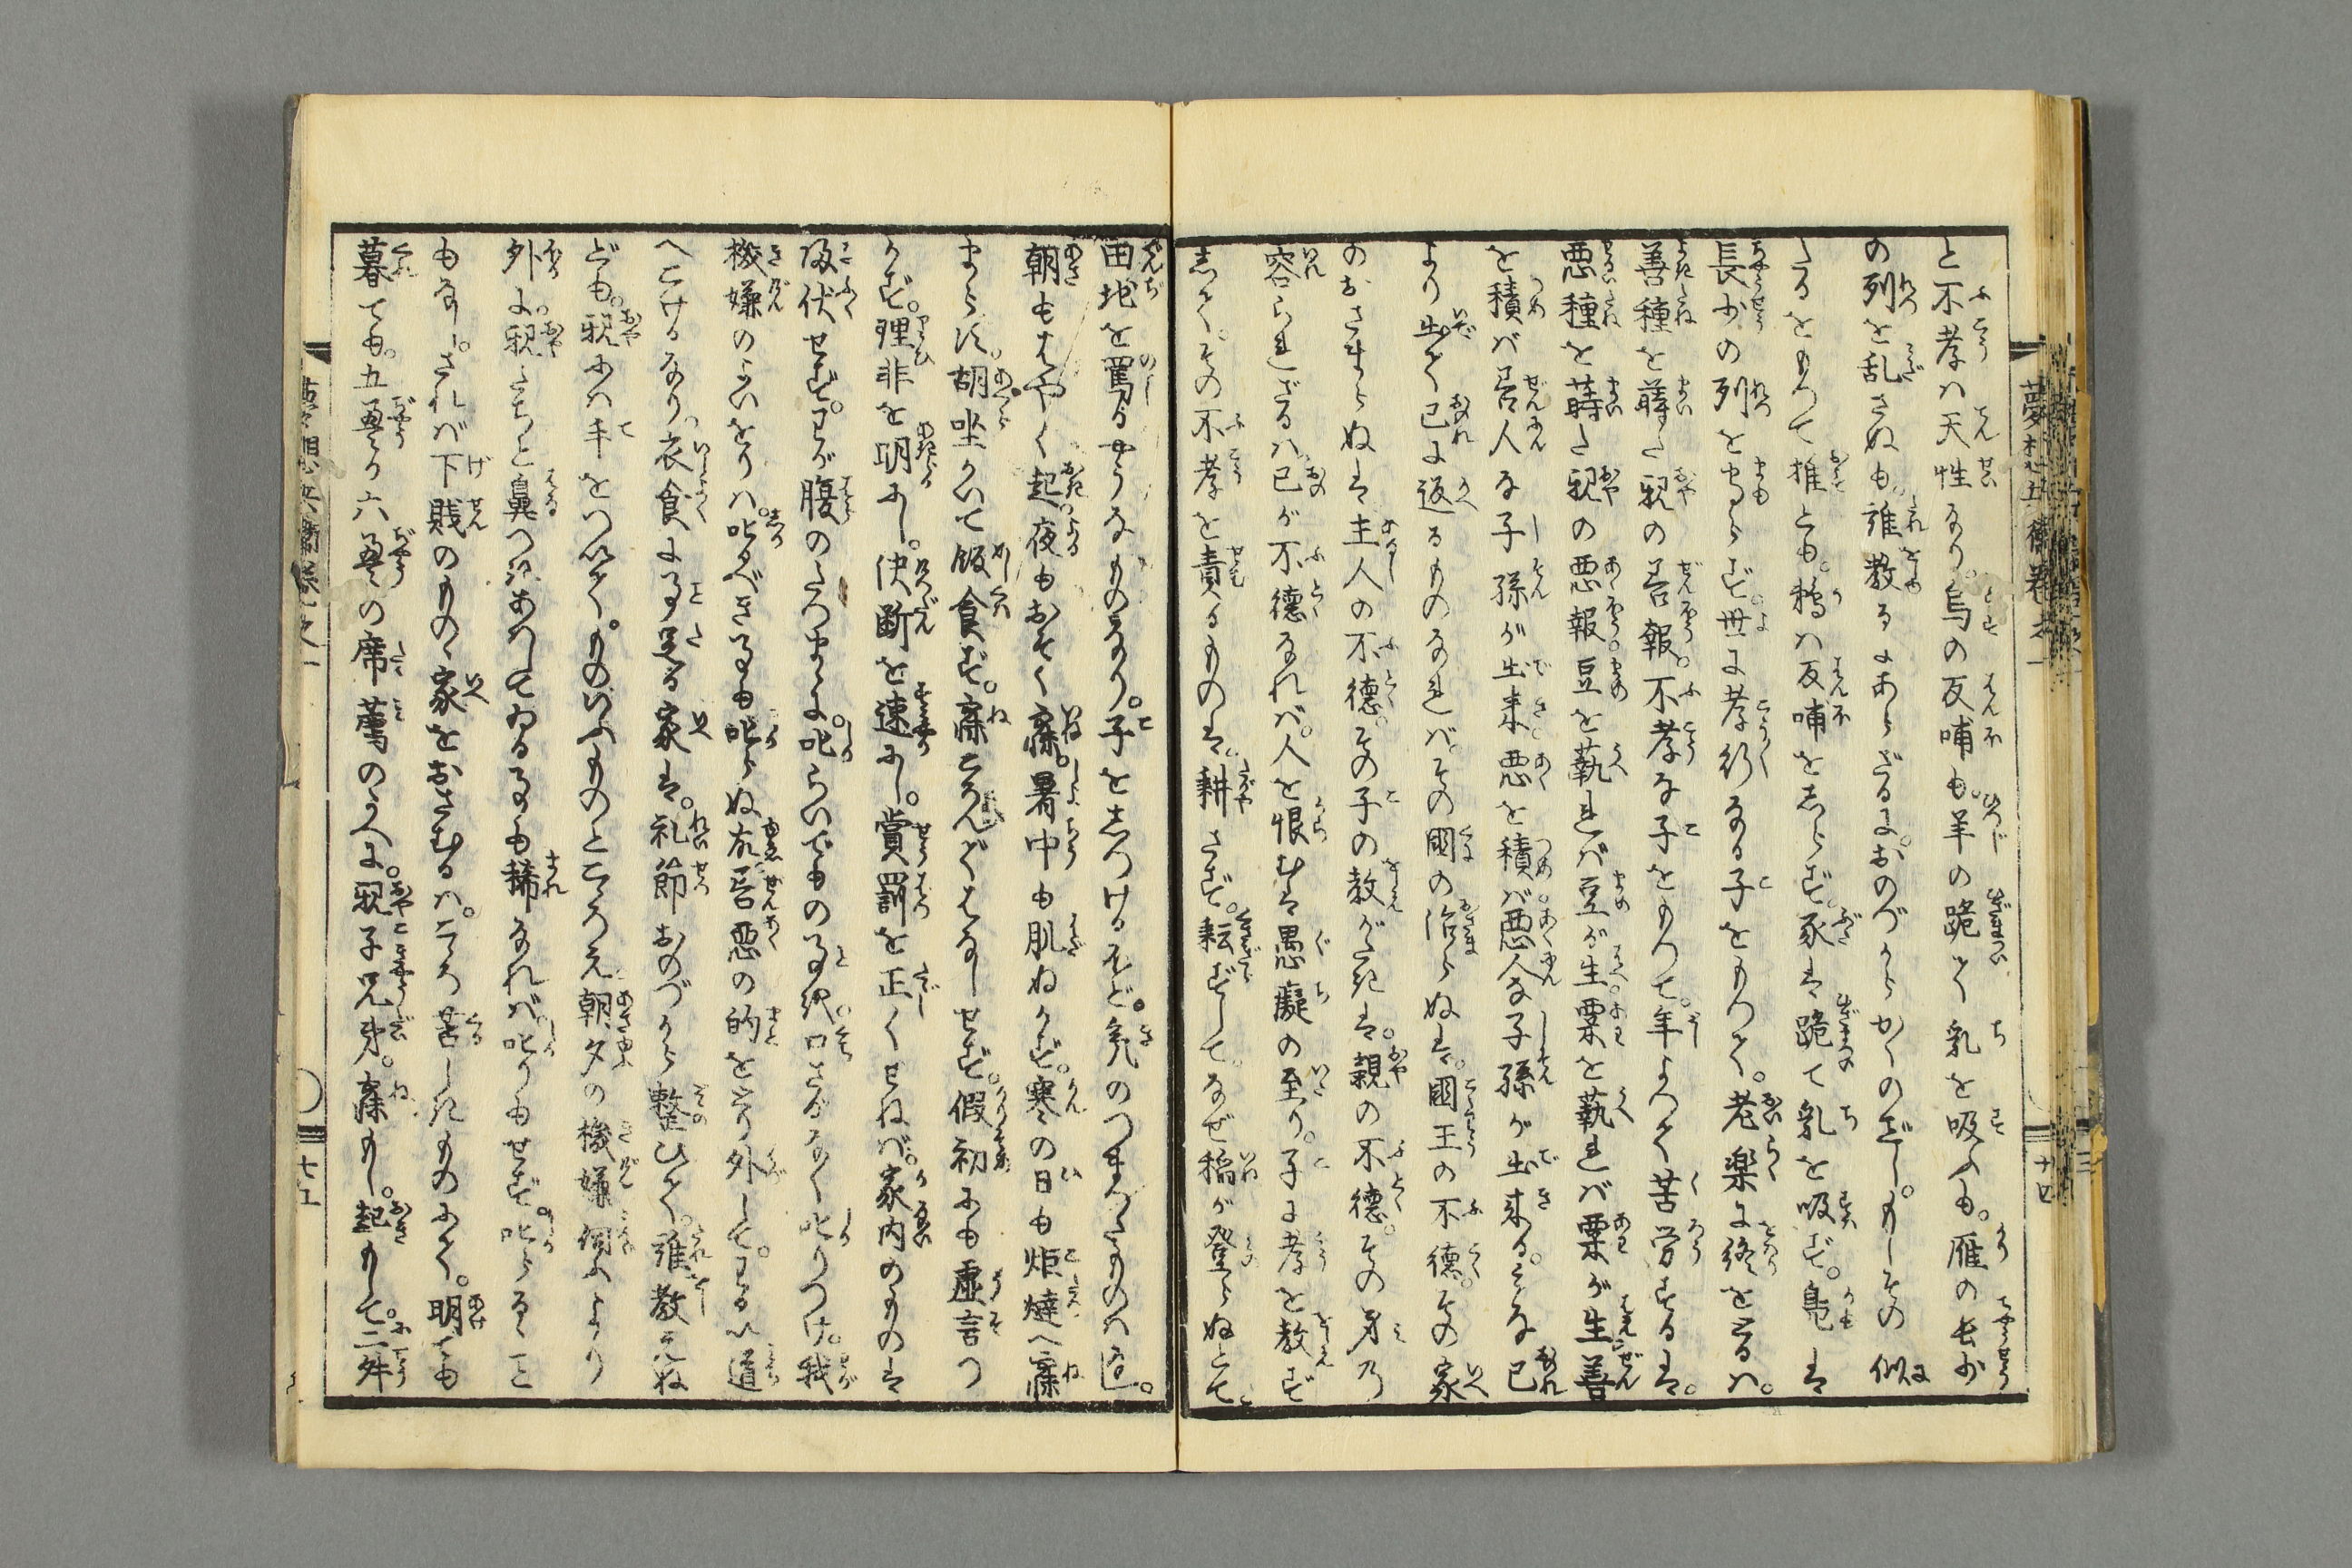 と不孝は天性なり。烏の反哺も。羊の跪て乳を吸ふも。雁の長少
の列を乱さぬも。誰教るにあらざるに。おのづからかくのごし。もしその似
たるをもつて推とも。鴉は反哺をしらず。豕は跪て乳を吸ず。鳬は
長少の列をまもらず。世に孝行なる子をもつて。老楽に終をとるは。
善種を蒔た親の善報。不孝な子をもつて。年よつて苦労するは。
悪種を蒔た親の悪報。豆を藝れば豆が生。粟を藝れば粟が生。善
を積ば善人な子孫が出来。悪を積ば悪人な子孫が出来る。みな己
より出て己に返るものなれば。その國の治らぬは。國王の不徳。その家
のおさまらぬは主人の不徳。その子の教がたきは。親の不徳。その身の
容られざるは。己が不徳なれば。人を恨むは愚癡の至り。子に孝を教ず
して。その不孝を責るものは。耕さず。耘ずして。なぜ稲が登らぬとて
田地を罵るやうなものなり。子をしつけるほど。気のつまつたものはない。
朝もはやく起。夜もおそく寐。暑中も肌ぬがず。寒の日も炬燵へ寐
まらず。胡坐かいて飯食ず。寐ころんではなしせず。假初にも虚言つ
かず。理非を明にし。决断を速にし。賞罰を正しくせねば。家内のものは
帰伏せず。わが腹のたつまゝに。叱らいでもの事。口さがなく叱りつけ。我
機嫌のよいをりは。叱るべき事も叱らぬ故。善悪の的をとり外して。わるい道
へこけるなり。衣食に事足る家は。礼節おのづから整ひて。誰教えね
ども。親には手をついて。ものいふものとこゝろえ。朝夕の機嫌伺ふより
外に。親たちと鼻つきあはしてゐる事も稀なれば。叱りもせず。叱らるゝこと
もなし。されば下賎のものゝ家をおさむるは。こゝろ苦しきものにて。明ても
暮ても。五疊か六疊の席薦のうへに。親子兄弟。寐もし。起もして。二舛
夢想兵衛巻之一
十四
十五